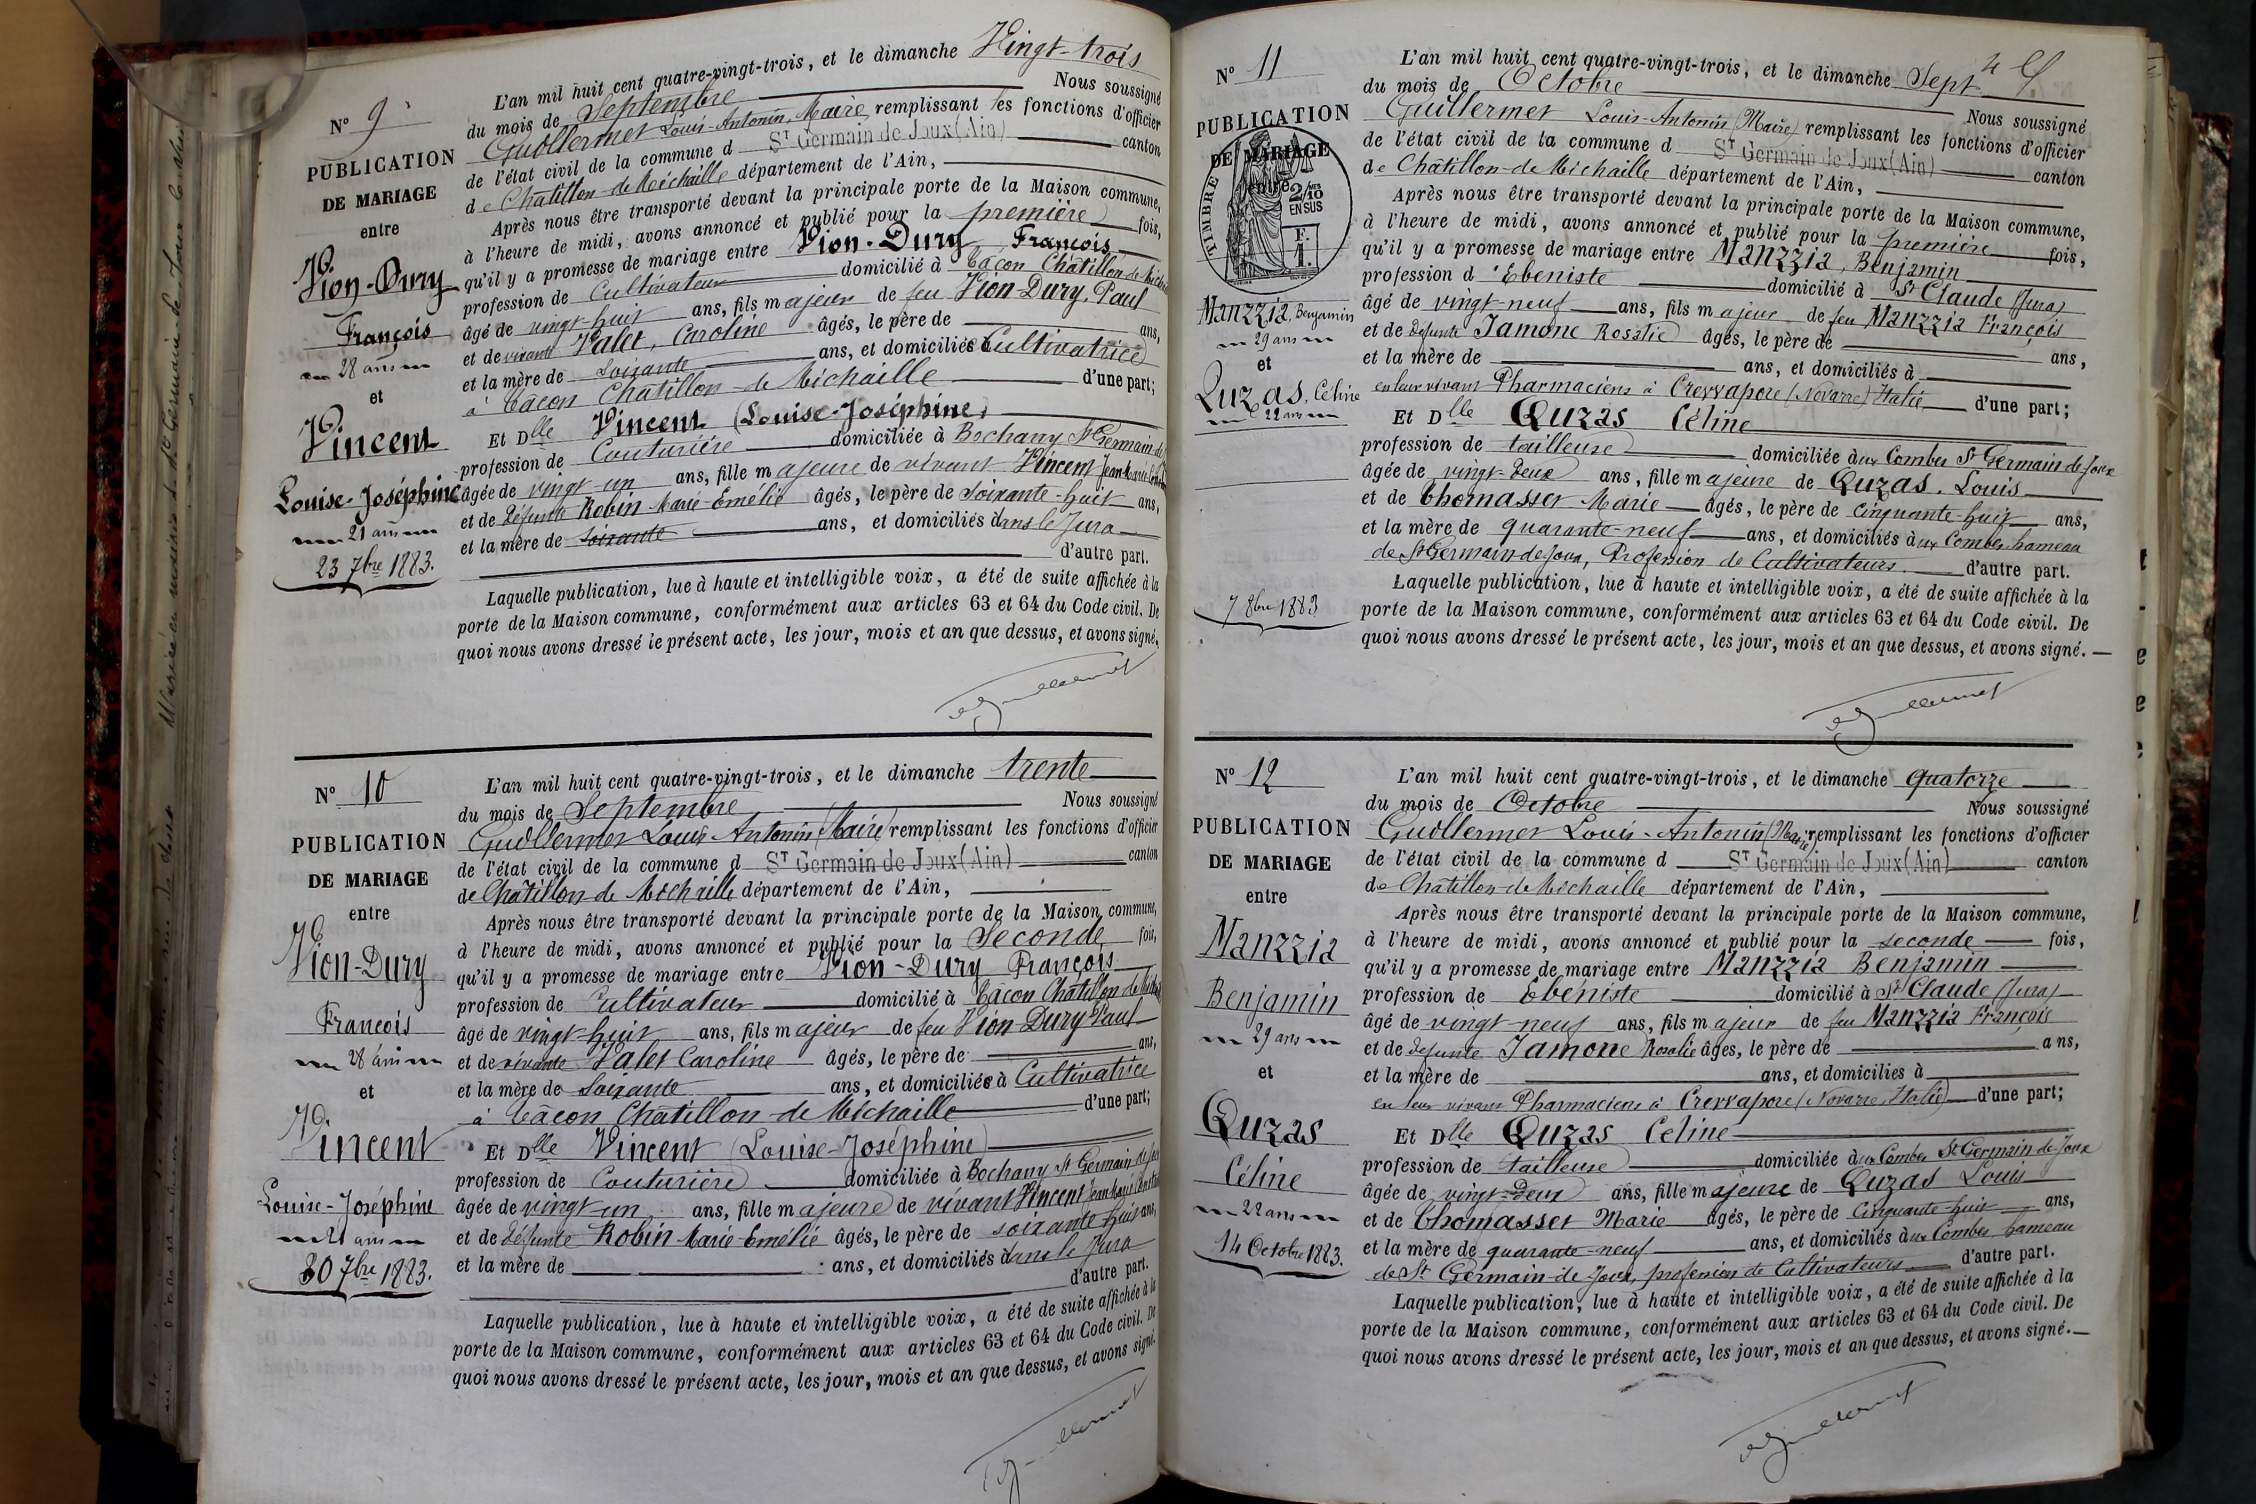 N° 9
PUBLICATION
DE MARIAGE
entre
Vion-Dury
François
28 ans
et
Vincent
Louise-Joséphine
21 ans
23 7bre 1883.
L'an mil huit cent quatre-vingt-trois, et le dimanche Vingt-trois
du mois de Septembre Nous soussigné
Guillermet Louis-Antonin, Maire, remplissant les fonctions d'officier
de l'état civil de la commune d St Germain de Joux (Ain) canton
de Châtillon-de-Michaille département de l'Ain,
Après nous être transporté devant la principale porte de la Maison commune,
à l'heure de midi, avons annoncé et publié pour la première fois,
qu'il y a promesse de mariage entre Vion-Dury François
profession de Cultivateur domicilié à Tacon Châtillon de Michaille
âgé de vingt-huit ans, fils majeur de feu Vion-Dury, Paul
et de vivante Valet, Caroline âgés, le père de ans,
et la mère de Soixante ans, et domiciliés Cultivatrice
à Tacon Châtillon-de-Michaille d'une part;
Et Dlle Vincent (Louise-Joséphine)
profession de Couturière domiciliée à Bochany St Germain de
âgée de vingt-un ans, fille majeure de vivant Vincent Jean-Marie
et de défunte Robin Marie-Emélie âgés, le père de Soixante-huit ans,
et la mère de soixante ans, et domiciliés dans le Jura
d'autre part.
Laquelle publication, lue à haute et intelligible voix, a été de suite affichée à la
porte de la Maison commune, conformément aux articles 63 et 64 du Code civil. De
quoi nous avons dressé le présent acte, les jour, mois et an que dessus, et avons signé,
Guillermet
N° 10
PUBLICATION
DE MARIAGE
entre
Vion-Dury
François
28 ans
et
Vincent
Louise-Joséphine
21 ans
30 7bre 1883.
L'an mil huit cent quatre-vingt-trois, et le dimanche trente
du mois de Septembre Nous soussigné
Guillermet Louis Antonin (Maire) remplissant les fonctions d'officier
de l'état civil de la commune d St Germain de Joux (Ain) canton
de Châtillon de Michaille département de l'Ain,
Après nous être transporté devant la principale porte de la Maison commune,
à l'heure de midi, avons annoncé et publié pour la Seconde fois,
qu'il y a promesse de mariage entre Vion-Dury François
profession de Cultivateur domicilié à Tacon Châtillon de
âgé de vingt-huit ans, fils majeur de feu Vion Dury Paul
et de vivante Valet Caroline âgés, le père de ans,
et la mère de Soixante ans, et domiciliés à Cultivatrice
à Tacon Châtillon-de-Michaille d'une part;
Et Dlle Vincent (Louise-Joséphine)
profession de Couturière domiciliée à Bochany St Germain de Joux
âgée de vingt-un ans, fille majeure de vivant Vincent Jean-Marie
et de défunte Robin Marie-Emélie âgés, le père de soixante huit ans,
et la mère de ans, et domiciliés dans le Jura
d'autre part.
Laquelle publication, lue à haute et intelligible voix, a été de suite affichée à la
porte de la Maison commune, conformément aux articles 63 et 64 du Code civil. De
quoi nous avons dressé le présent acte, les jour, mois et an que dessus, et avons signé.
Guillermet
N° 11
PUBLICATION
DE MARIAGE
entre
TIMBRE
2/10 EN SUS
F. 1.
Manzzia, Benjamin
29 ans
et
Quzas, Céline
22 ans
7 8bre 1883
L'an mil huit cent quatre-vingt-trois, et le dimanche Sept
du mois de Octobre Nous soussigné
Guillermet Louis-Antonin (Maire) remplissant les fonctions d'officier
de l'état civil de la commune d St Germain de Joux (Ain) canton
de Châtillon-de-Michaille département de l'Ain,
Après nous être transporté devant la principale porte de la Maison commune,
à l'heure de midi, avons annoncé et publié pour la première fois,
qu'il y a promesse de mariage entre Manzzia, Benjamin
profession d'Ebéniste domicilié à St Claude (Jura)
âgé de vingt-neuf ans, fils majeur de feu Manzzia François
et de défunte Jamone Rosalie âgés, le père de ans,
et la mère de ans, et domiciliés à
en leur vivant Pharmaciens à Crevvapore (Novarre) Italie d'une part;
Et Dlle Quzas Céline
profession de tailleuse domiciliée aux Combes St Germain de Joux
âgée de vingt-deux ans, fille majeure de Quzas, Louis
et de Thomasset Marie âgés, le père de cinquante-huit ans,
et la mère de quarante-neuf ans, et domiciliés aux Combes hameau
de St Germain-de-Joux, Profession de Cultivateurs d'autre part.
Laquelle publication, lue à haute et intelligible voix, a été de suite affichée à la
porte de la Maison commune, conformément aux articles 63 et 64 du Code civil. De
quoi nous avons dressé le présent acte, les jour, mois et an que dessus, et avons signé.
Guillermet
N° 12
PUBLICATION
DE MARIAGE
entre
Manzzia
Benjamin
29 ans
et
Quzas
Céline
22 ans
14 Octobre 1883.
L'an mil huit cent quatre-vingt-trois, et le dimanche quatorze
du mois de Octobre Nous soussigné
Guillermet Louis-Antonin (Maire) remplissant les fonctions d'officier
de l'état civil de la commune d St Germain de Joux (Ain) canton
de Châtillon-de-Michaille département de l'Ain,
Après nous être transporté devant la principale porte de la Maison commune,
à l'heure de midi, avons annoncé et publié pour la seconde fois,
qu'il y a promesse de mariage entre Manzzia Benjamin
profession de Ebéniste domicilié à St Claude (Jura)
âgé de vingt-neuf ans, fils majeur de feu Manzzia François
et de défunte Jamone Rosalie âgés, le père de ans,
et la mère de ans, et domiciliés à
en leur vivant Pharmaciens à Crevvapore (Novarre Italie) d'une part;
Et Dlle Quzas Céline
profession de tailleuse domiciliée aux Combes St Germain de Joux
âgée de vingt-deux ans, fille majeure de Quzas Louis
et de Thomasset Marie âgés, le père de Cinquante-huit ans,
et la mère de quarante-neuf ans, et domiciliés aux Combes hameau
de St Germain-de Joux, profession de Cultivateurs d'autre part.
Laquelle publication, lue à haute et intelligible voix, a été de suite affichée à la
porte de la Maison commune, conformément aux articles 63 et 64 du Code civil. De
quoi nous avons dressé le présent acte, les jour, mois et an que dessus, et avons signé.
Guillermet